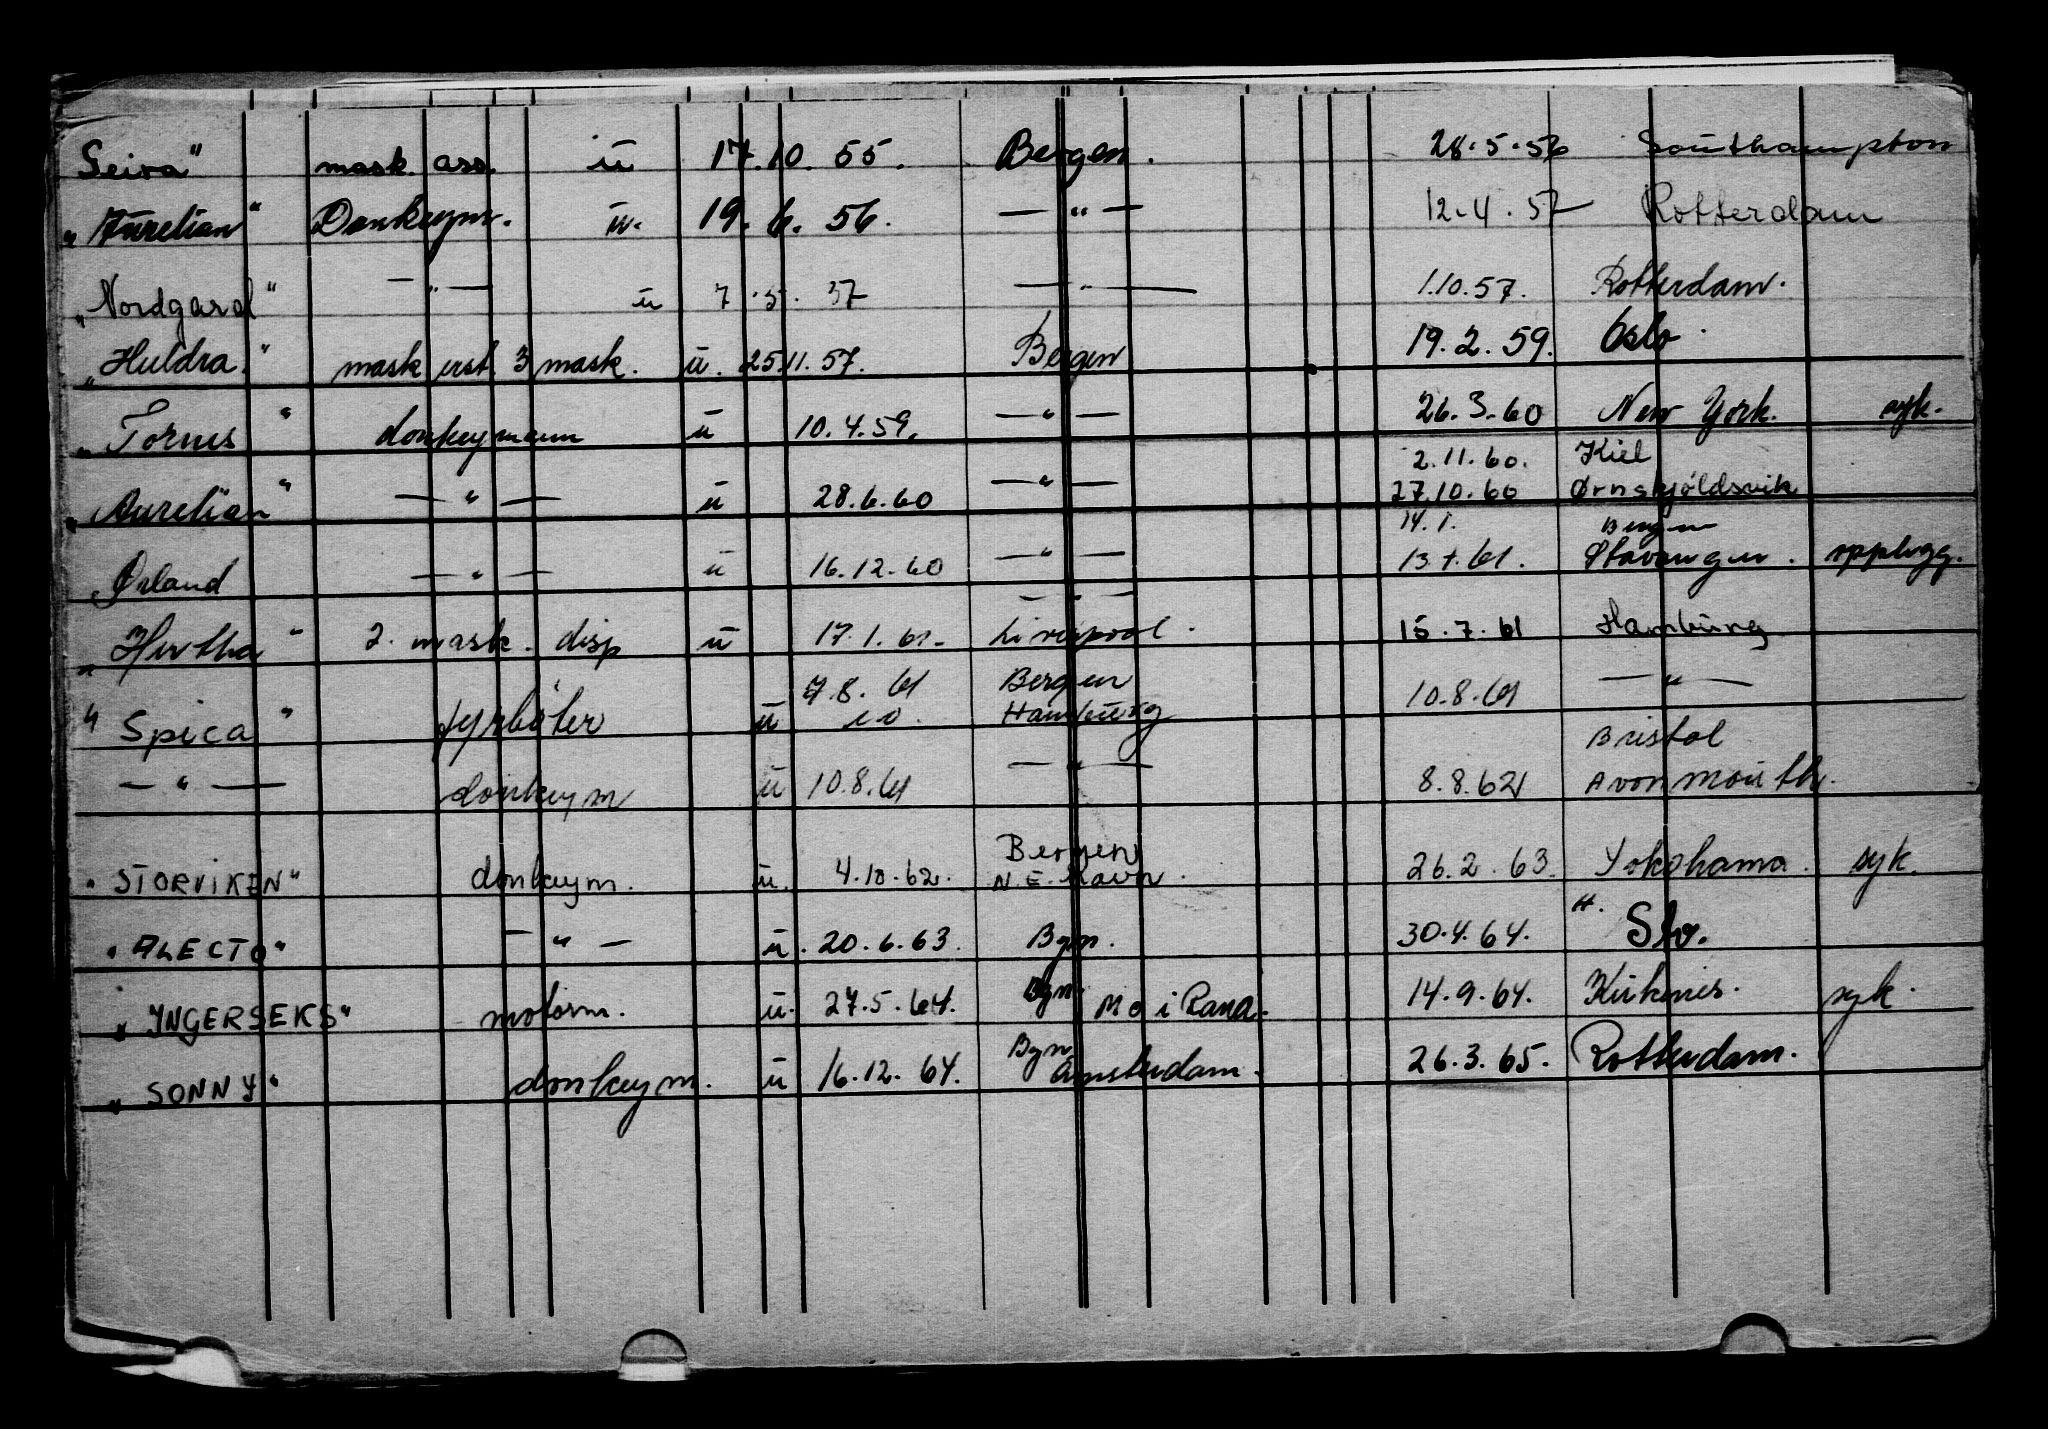 Seira" mask. ass. u 17.10. 55. Bergen. 28.5.56 Southampton
"Aurelian" Donkeym. u. 19. 6. 56. — " — 12.4.57 Rotterdam
"Nordgard" — " — u 7. 5. 57 — " — 1.10.57. Rotterdam.
"Huldra" mask erst. 3 mask. u. 25.11.57. Bergen 19.2.59. Oslo.
"Tornes" donkeymann u 10.4.59. — " — 26.3.60 New York. syk.
2.11.60. Kiel
"Aurelian" — " — u 28.6.60 — " — 27.10.60 Ørnskjöldsvik
14.1. Bergen
"Ørland — " — u 16.12.60 — " — 13.1.61. Stavanger. opplegg.
— " —
"Hertha" 2. mask. disp u 17.1.61. Liverpool. 15.7.61 Hamburg
7.8.61 Bergen
"Spica" fyrbøter u 10. Hamburg 10.8.61 — " —
Bristol
— " — donkeym u 10.8.61 — " — 8.8.62 Avonmouth.
Bergen
"STORVIKEN" donkeym. u. 4.10.62. N.E. Havn. 26.2.63. Yokohama. syk.
"ALECTO" — " — u. 20.6.63. Bgn. 30.4.64. H. Slv.
"YNGERSEKS" motorm. u. 27.5.64. Bgn. Mo i Rana. 14.9.64. Kirkenes. syk.
"SONNY" donkeym. u 16.12.64. Bgn. Amsterdam. 26.3.65. Rotterdam.